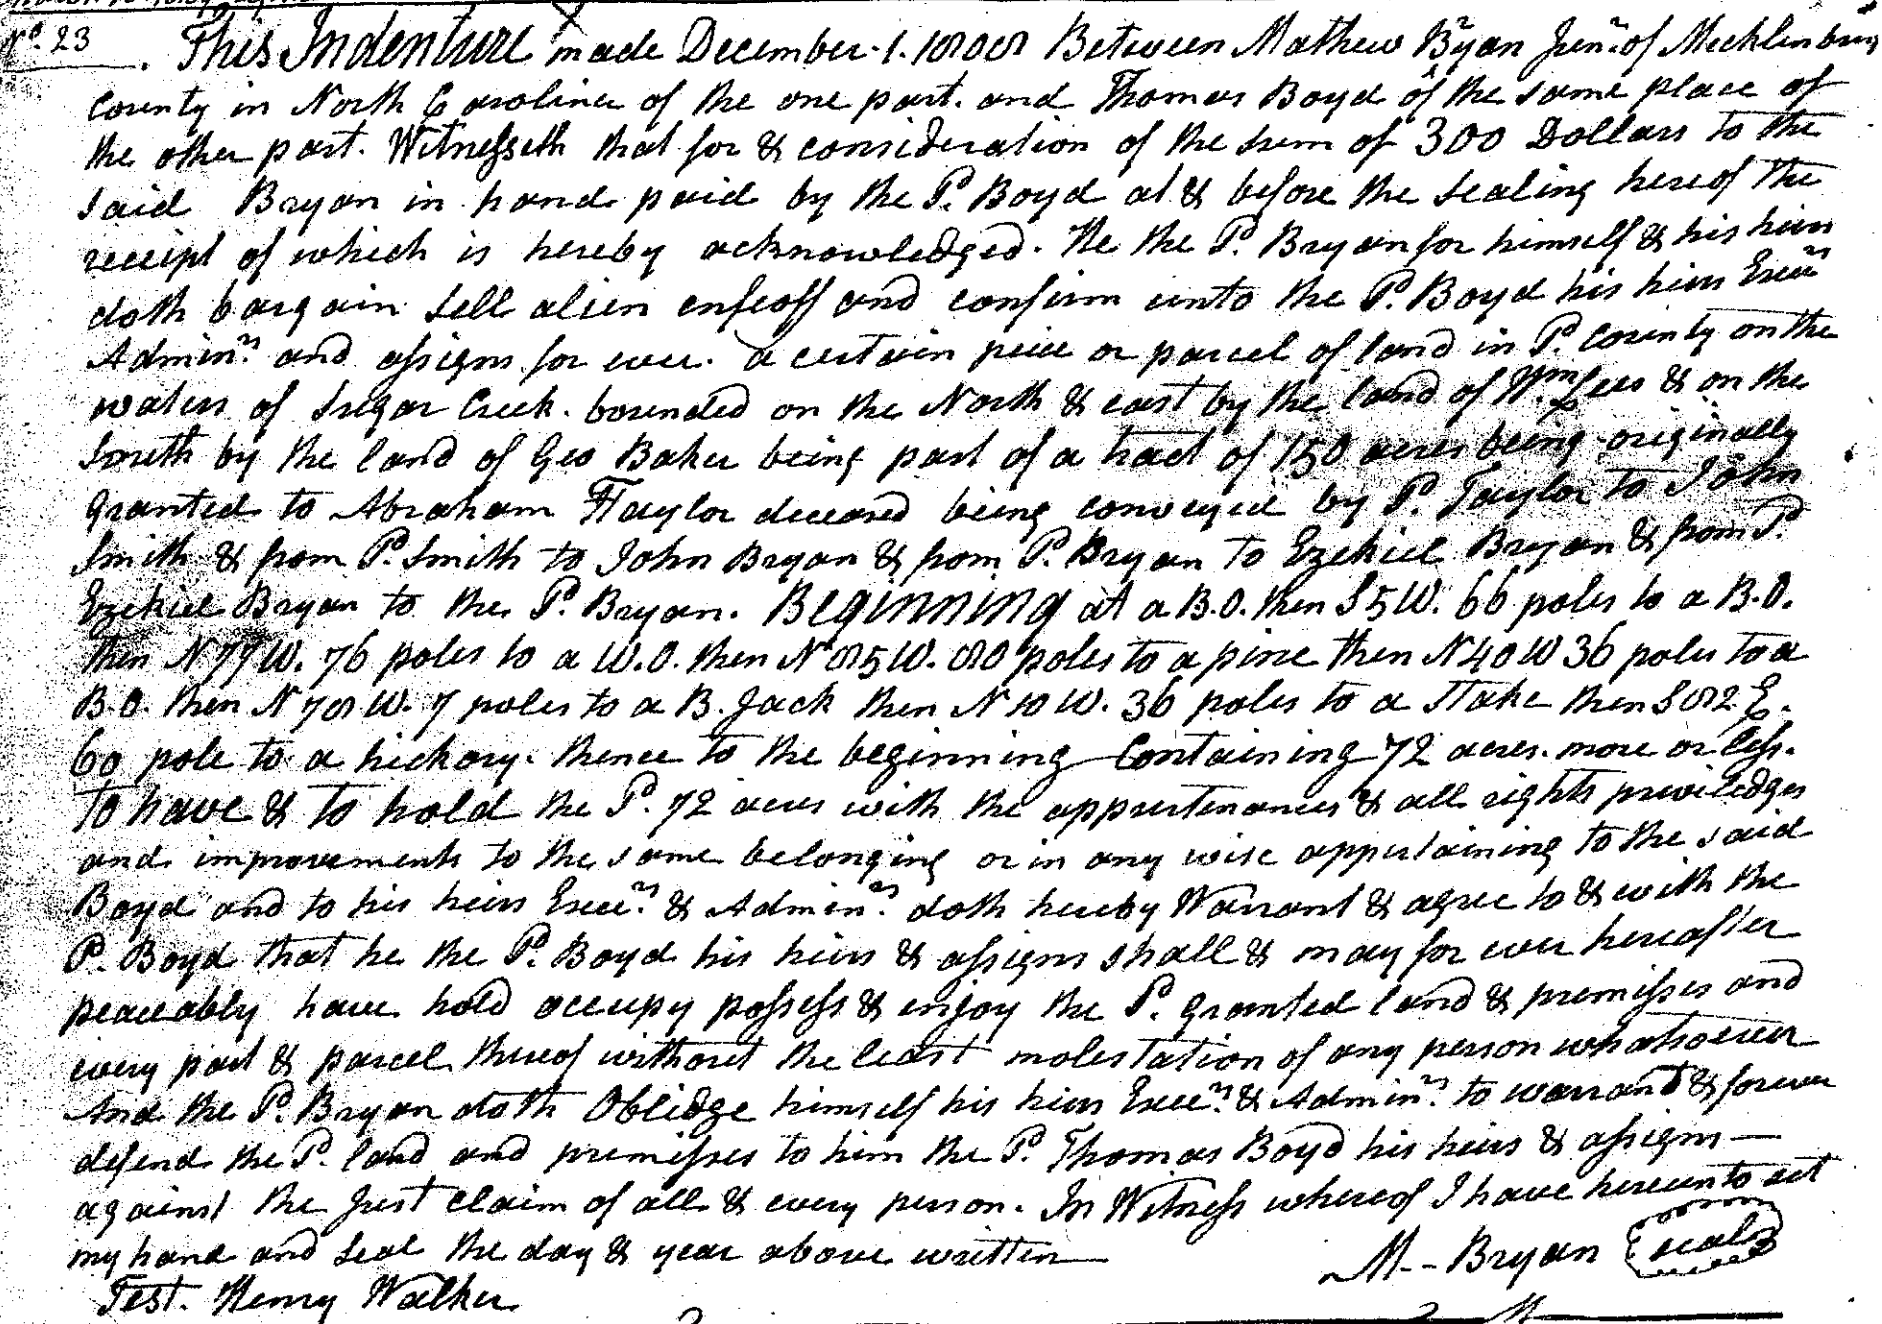 No. 23. This Indenture made December. 1. 1808 Between Mathew Bryan Junr. of Mecklenburg
County in North Carolina of the one part. and Thomas Boyd of the same place of
the other part. Witnesseth that for & consideration of the sum of 300 Dollars to the
said Bryan in hand paid by the Sd. Boyd at & before the sealing hereof the
receipt of which is hereby acknowledged. He the Sd. Bryan for himself & his heirs
doth bargain sell alien enfeoff and confirm unto the Sd. Boyd his heirs Execrs
Adminrs. and assigns for ever. a certain peice or parcel of land in Sd. County on the
waters of Sugar Creek. bounded on the North & east by the land of Wm. Lees & on the
South by the land of Geo Baker being part of a tract of 150 acres being originally
granted to Abraham Taylor deceased being conveyed by Sd. Taylor to John
Smith & from Sd. Smith to John Bryan & from Sd. Bryan to Ezekiel Bryan & from Sd.
Ezekiel Bryan to the Sd. Bryan. Beginning at a B.O. then S 5 W. 66 poles to a B.O.
then N 77 W. 76 poles to a W.O. then N 85 W. 80 poles to a pine then N 40 W 36 poles to a
B.O. then N 78 W. 7 poles to a B. Jack then N 10 W. 36 poles to a Stake then S 82 E.
60 pole to a hickory. thence to the beginning Containing 72 acres. more or less.
To have & to hold the Sd. 72 acres with the appurtenances & all rights priviledges
and improvements to the same belonging or in any wise appertaining to the said
Boyd and to his heirs Execrs. & Adminrs. doth hereby Warrant & agree to & with the
Sd. Boyd that he the Sd. Boyd his heirs & assigns shall & may for ever hereafter
peaceably have hold occupy possess & enjoy the Sd. granted land & premisses and
every part & parcel thereof without the least molestation of any person whatsoever
And the Sd. Bryan doth Oblidge himself his heirs Execrs. & Adminrs. to warrant & forever
defend the Sd. land and premisses to him the Sd. Thomas Boyd his heirs & assigns —
against the Just claim of all & every person. In Witness whereof I have hereunto set
my hand and seal the day & year above written
M. Bryan seal
Test. Henry Walker